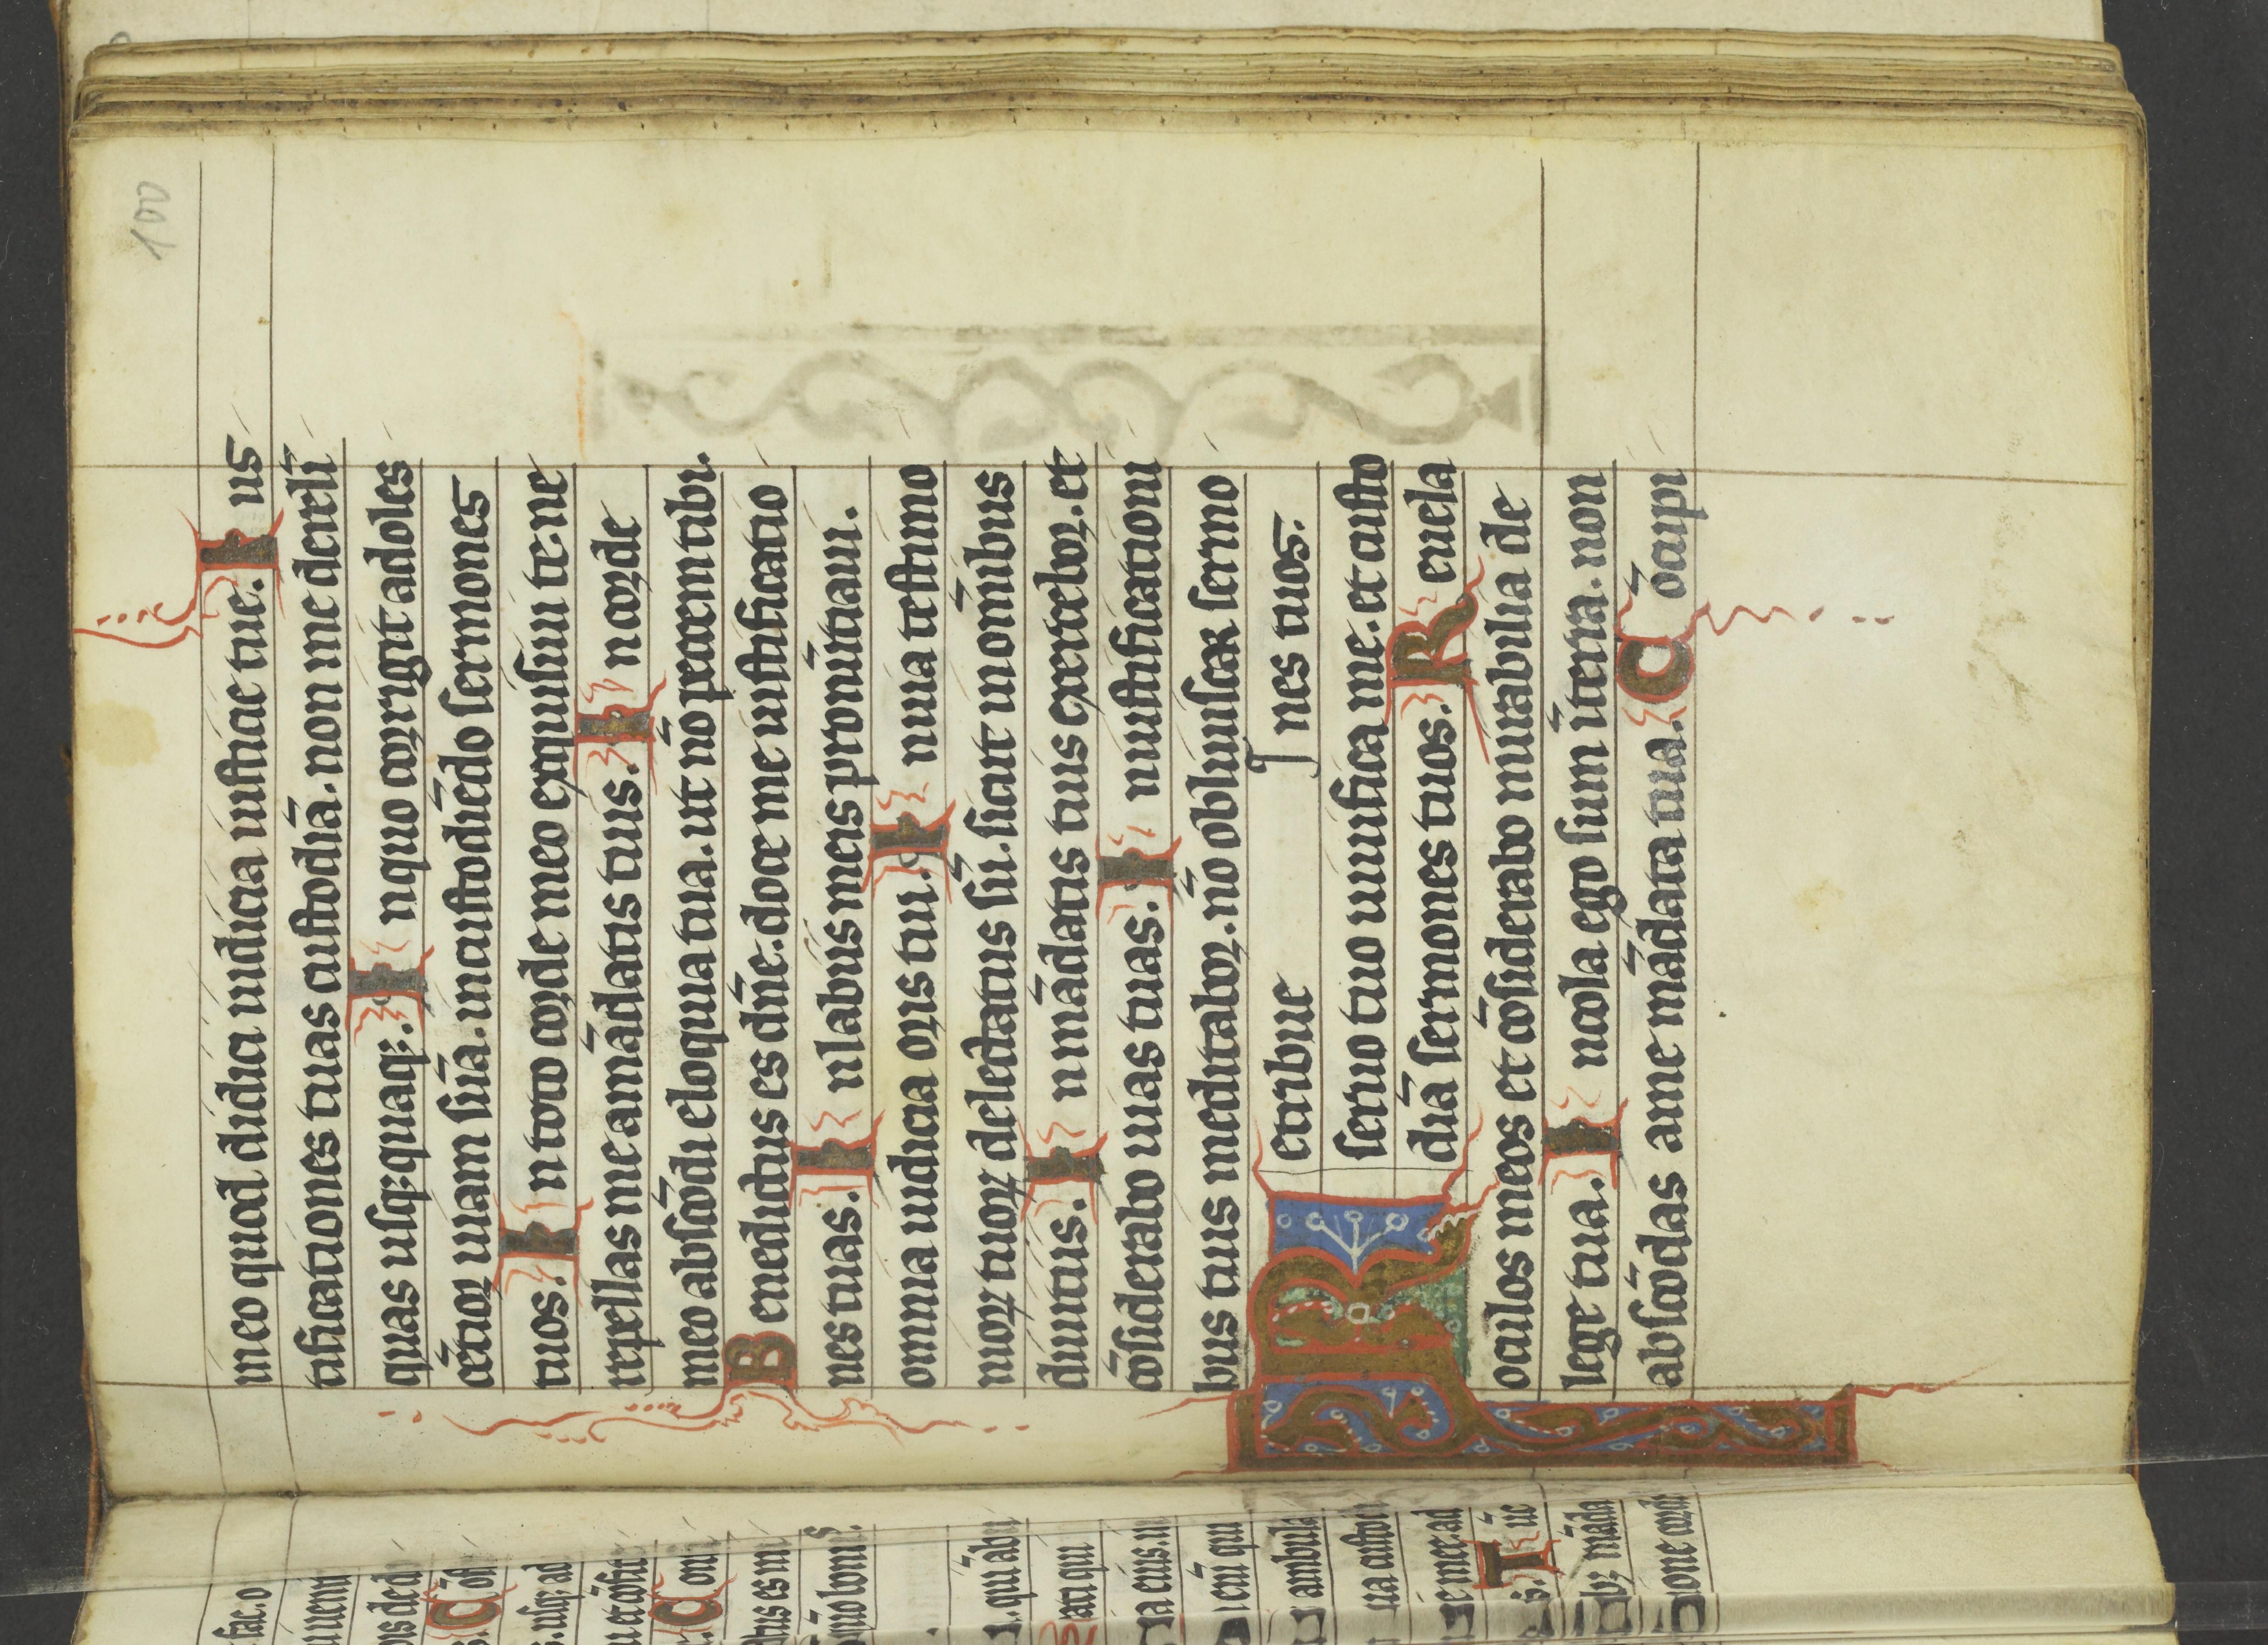 100
meo quod didici iudicia iusticie tue. Ius
tificationes tuas custodiā. non me dereli
quas usq;quaq;. In quo corrigit adoles
cētior uiam suā. in custodiēdo sermones
tuos. In toto corde meo exquisiui te. ne
repellas me a mādatis tuis. In corde
meo abscōdi eloquia tua. ut nō peccem tibi.
Benedictus es dn̄e. doce me iustificatio
nes tuas. In labiis meis pronūtiaui.
omnia iudicia oris tui. In uia testimo
nioꝝ tuoꝝ delectatus sū. sicut in om̄ibus
diuitiis. In mādatis tuis exercebor. et
cōsiderabo uias tuas. In iustificationi
bus tuis meditabor. nō obliuiscar sermo
Retribue nes tuos.
seruo tuo uiuifica me. et custo
diā sermones tuos. Reuela
oculos meos et cōsiderabo mirabilia de
lege tua. Incola ego sum ī terra. non
abscōdas a me mādata tua. Cōcupi